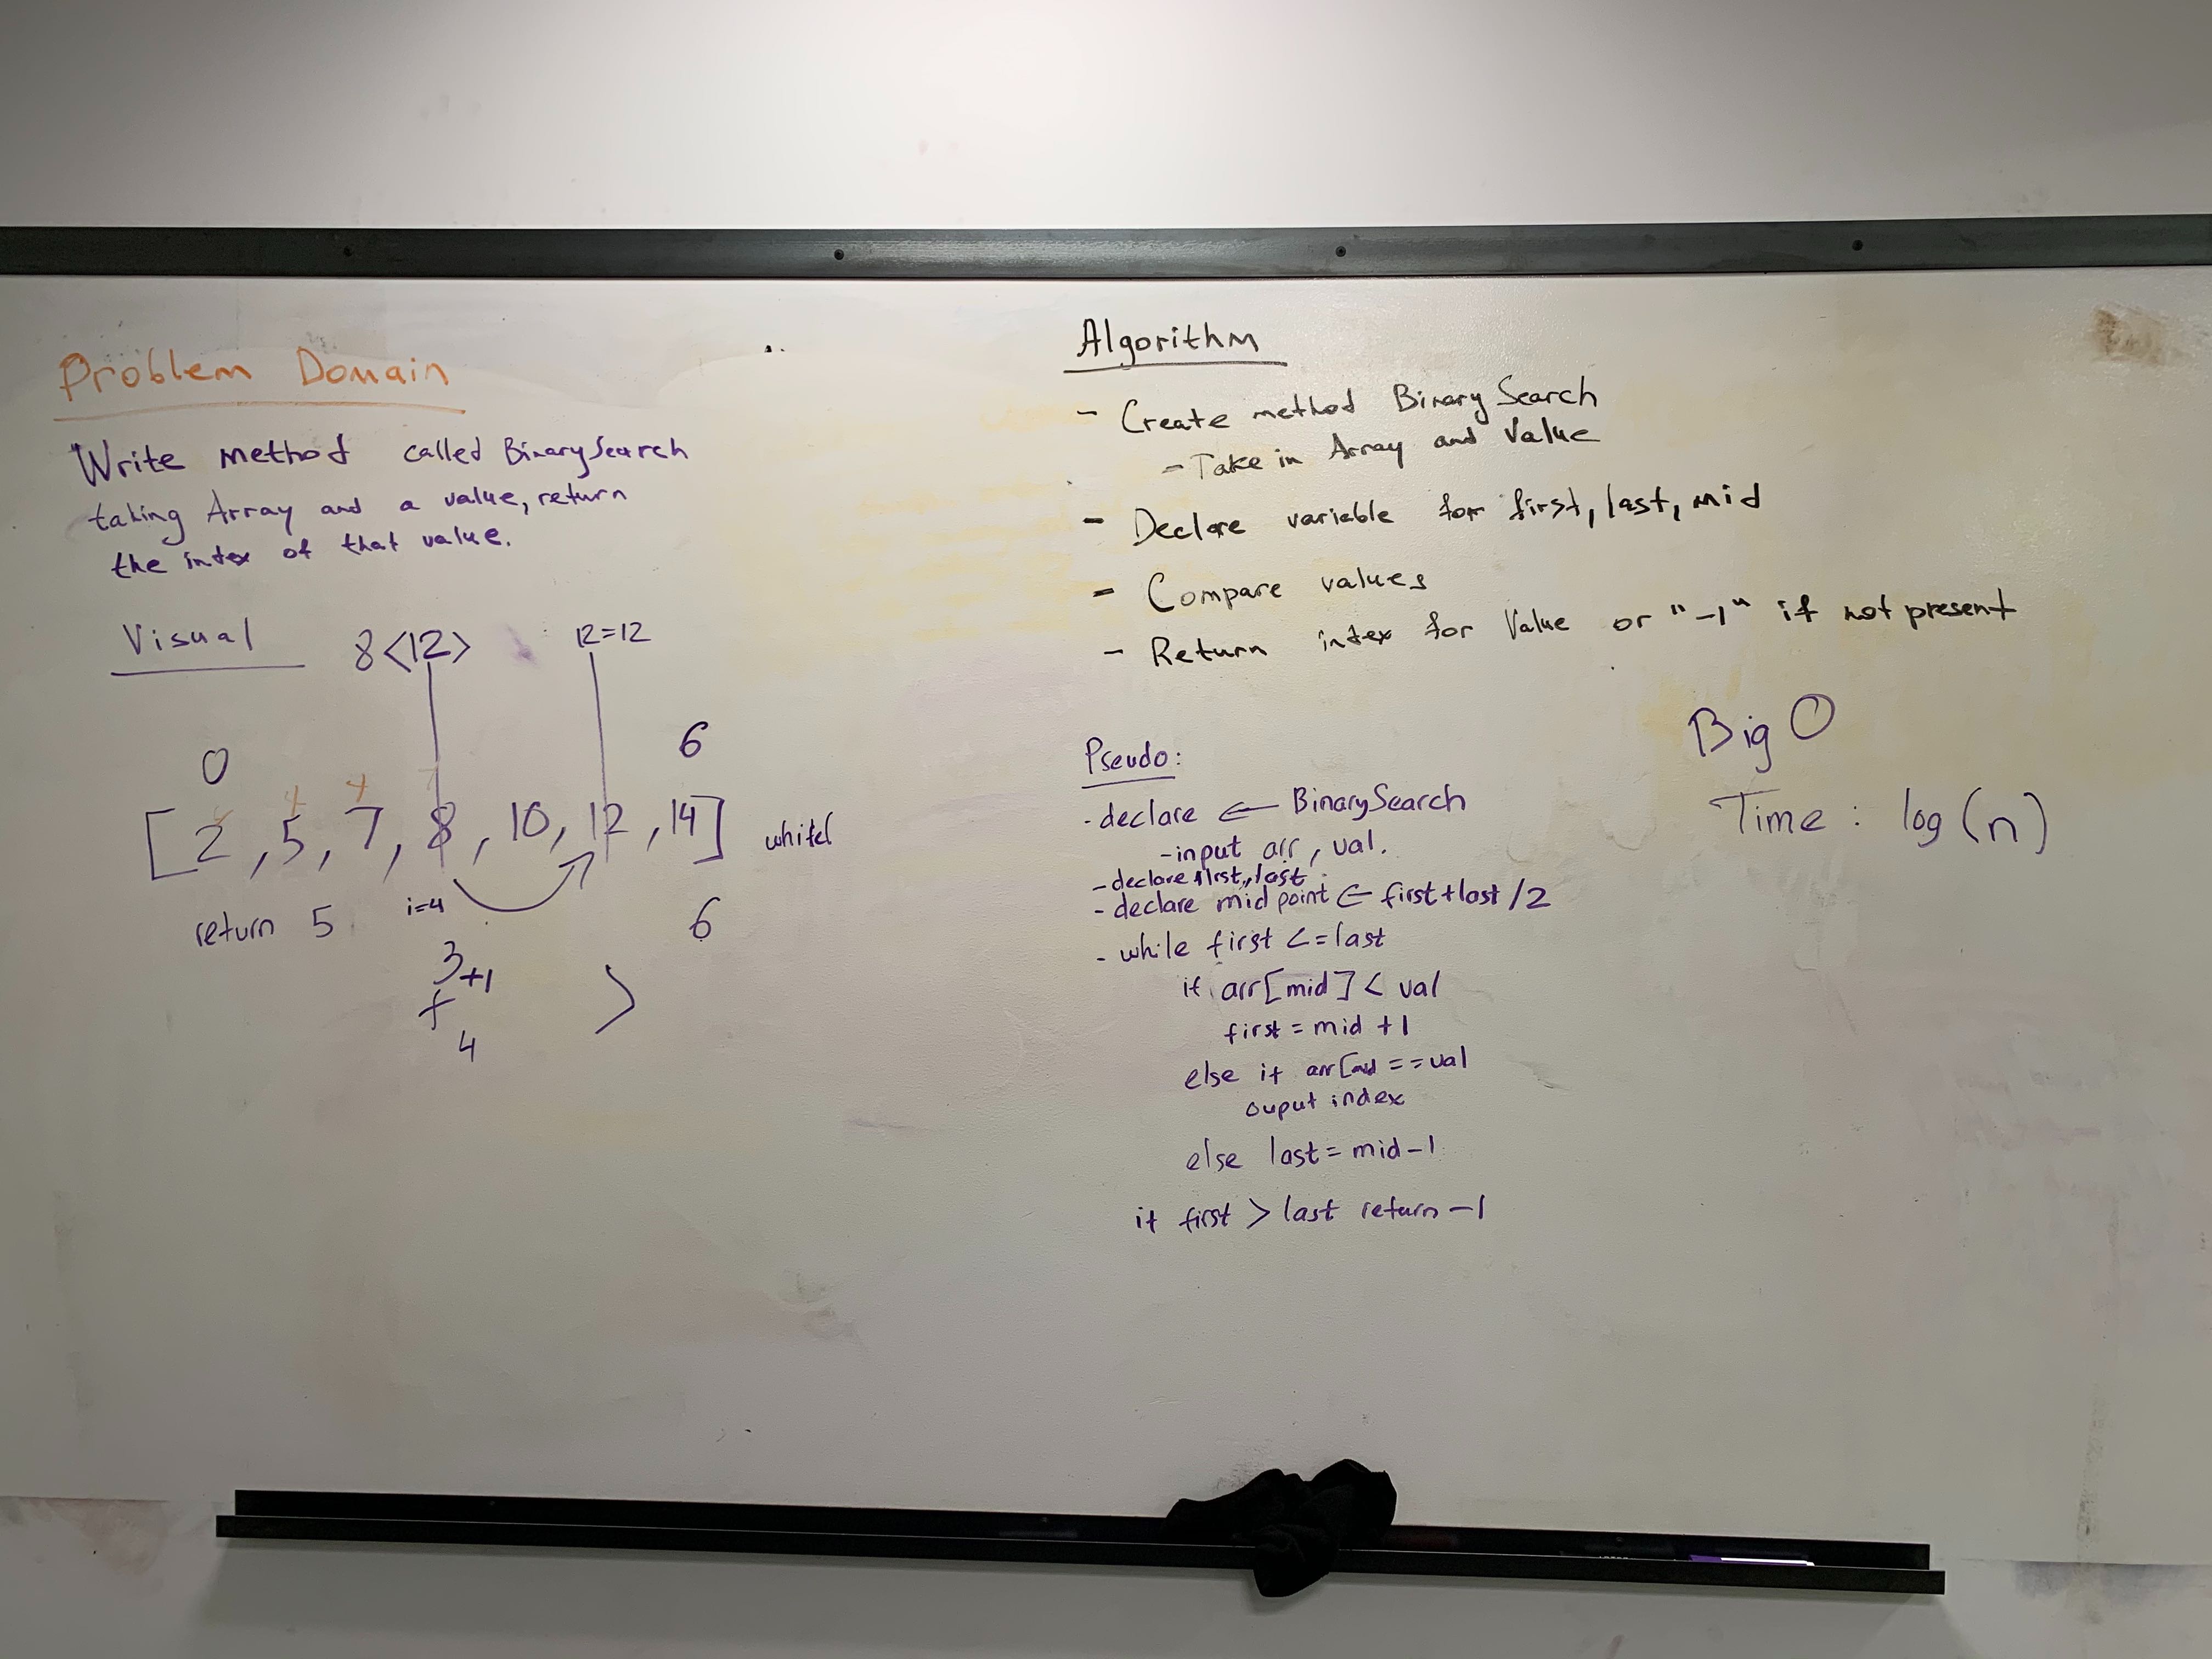 Problem Domain
Write method called BinarySearch
taking Array and a value, return
the index of that value.
Visual
8<12>
12=12
0
6
[2, 5, 7, 8, 10, 12, 14]
return 5
i=4
6
3+1
4
>
Algorithm
- Create method BinarySearch
- Take in Array and Value
- Declare variable for first, last, mid
- Compare values
- Return index for Value or "-1" if not present
Pseudo:
- declare ← BinarySearch
- input arr, val.
- declare first, last
- declare midpoint ← first+last/2
- while first <= last
if arr[mid] < val
first = mid +1
else if arr[mid ==val
ouput index
else last = mid-1
if first > last return -1
Big O
Time: log(n)